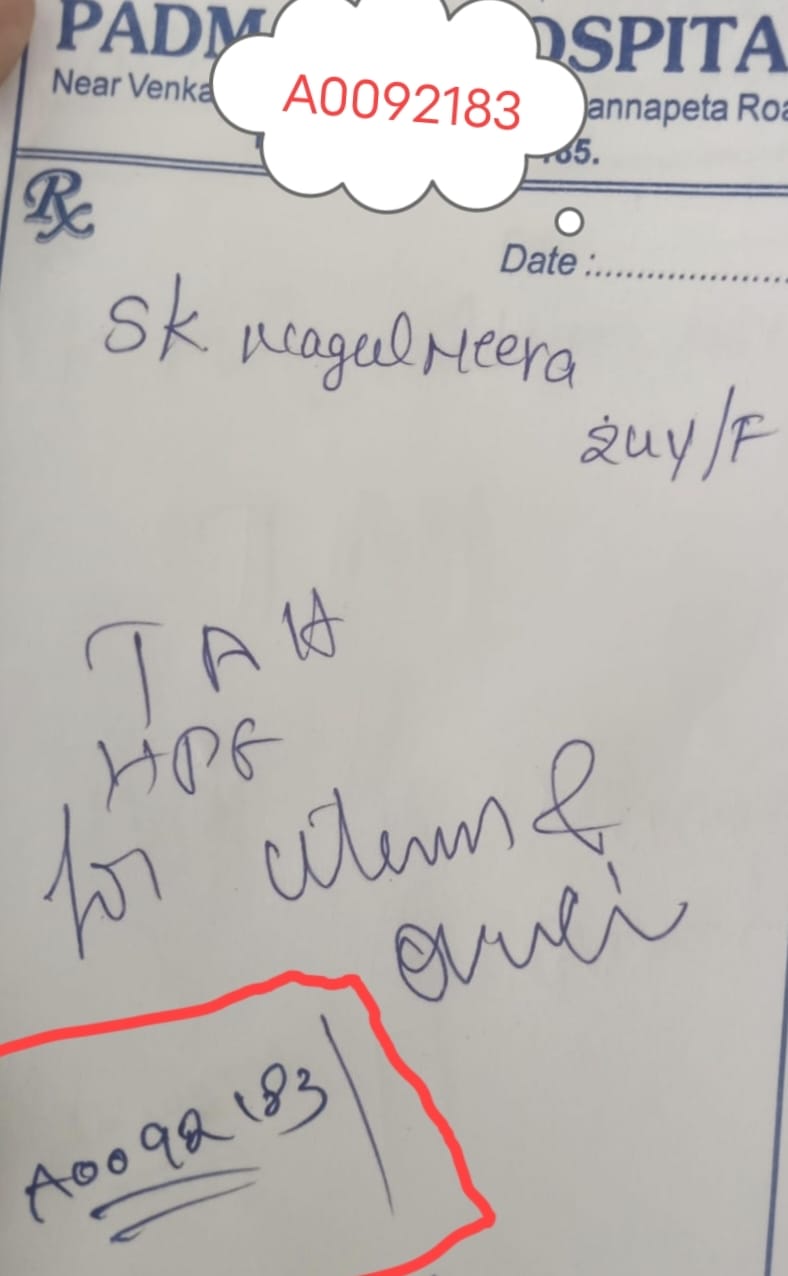 PADM OSPITA
Near Venka annapeta Roa
A0092183
185.
Rx
Date :....................
SK Nagul Meera
24y/F
TAH
HPE
for uterus &
A0092183